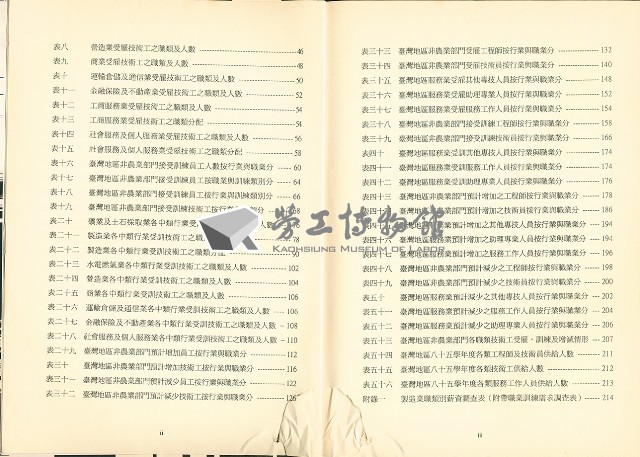 表八 營造業受雇技術工之職類及人數 46
表九 商業受雇技術工之職類及人數 48
表十 運輸倉儲及通信業受雇技術工之職類及人數 50
表十一 金融保險及不動產業受雇技術工之職類及人數 52
表十二 工商服務業受雇技術工之職類及人數 54
表十三 工商服務業受雇技術工之職類分配 54
表十四 社會服務及個人服務業受雇技術工之職類及人數 56
表十五 社會服務及個人服務業受雇技術工之職類分配 58
表十六 臺灣地區非農業部門接受訓練員工人數按行業與職業分 60
表十七 臺灣地區非農業部門接受訓練員工按職業與訓練類別分 64
表十八 臺灣地區非農業部門接受訓練員工按行業與訓練類別分 66
表十九 臺灣地區非農業部門接受訓練技術工按行業與職業分 68
表二十 礦業及土石採取業各中類行業受訓技術工之職類及人數 76
表二十一 製造業各中類行業受訓技術工之職類及人數 78
表二十二 製造業各中類行業受訓技術工之職類分配 90
表二十三 水電燃氣業各中類行業受訓技術工之職類及人數 102
表二十四 營造業各中類行業受訓技術工之職類及人數 104
表二十五 商業各中類行業受訓技術工之職類及人數 106
表二十六 運輸倉儲及通信業各中類行業受訓技術工之職類及人數 106
表二十七 金融保險及不動產業各中類行業受訓技術工之職類及人數 108
表二十八 社會服務及個人服務業各中類行業受訓技術工之職類及人數 110
表二十九 臺灣地區非農業部門預計增加員工按行業與職業分 112
表三十 臺灣地區非農業部門預計增加技術工按行業與職業分 116
表三十一 臺灣地區非農業部門預計減少員工按行業與職業分 122
表三十二 臺灣地區非農業部門預計減少技術工按行業與職業分 126
ii
表三十三 臺灣地區非農業部門受雇工程師按行業與職業分 132
表三十四 臺灣地區非農業部門受雇技術員按行業與職業分 140
表三十五 臺灣地區服務業受雇其他專技人員按行業與職業分 148
表三十六 臺灣地區服務業受雇助理專業人員按行業與職業分 152
表三十七 臺灣地區服務業受雇服務工作人員按行業與職業分 154
表三十八 臺灣地區非農業部門接受訓練工程師按行業與職業分 158
表三十九 臺灣地區非農業部門接受訓練技術員按行業與職業分 166
表四十 臺灣地區服務業受訓其他專技人員按行業與職業分 174
表四十一 臺灣地區服務業受訓服務工作人員按行業與職業分 174
表四十二 臺灣地區服務業受訓助理專業人員按行業與職業分 176
表四十三 臺灣地區非農業部門預計增加之工程師按行業與職業分 178
表四十四 臺灣地區非農業部門預計增加之技術員按行業與職業分 186
表四十五 臺灣地區服務業預計增加之其他專技人員按行業與職業分 194
表四十六 臺灣地區服務業預計增加之助理專業人員按行業與職業分 194
表四十七 臺灣地區服務業預計增加之服務工作人員按行業與職業分
表四十八 臺灣地區非農業部門預計減少之工程師按行業與職業分 198
表四十九 臺灣地區非農業部門預計減少之技術員按行業與職業分 200
表五十 臺灣地區服務業預計減少之其他專技人員按行業與職業分 202
表五十一 臺灣地區服務業預計減少之服務工作人員按行業與職業分 204
表五十二 臺灣地區服務業預計減少之助理專業人員按行業與職業分 206
表五十三 臺灣地區非農業部門各職類技術工受雇、訓練及增減情形 207
表五十四 臺灣地區八十五學年度各類工程師及技術員供給人數 211
表五十五 臺灣地區八十五學年度各類技術工供給人數 212
表五十六 臺灣地區八十五學年度各類服務工作人員供給人數 213
附錄一 製造業職類別薪資調查表（附帶職業訓練需求調查表） 214
勞工博物館
KAOHSIUNG MUSEUM OF LABOR